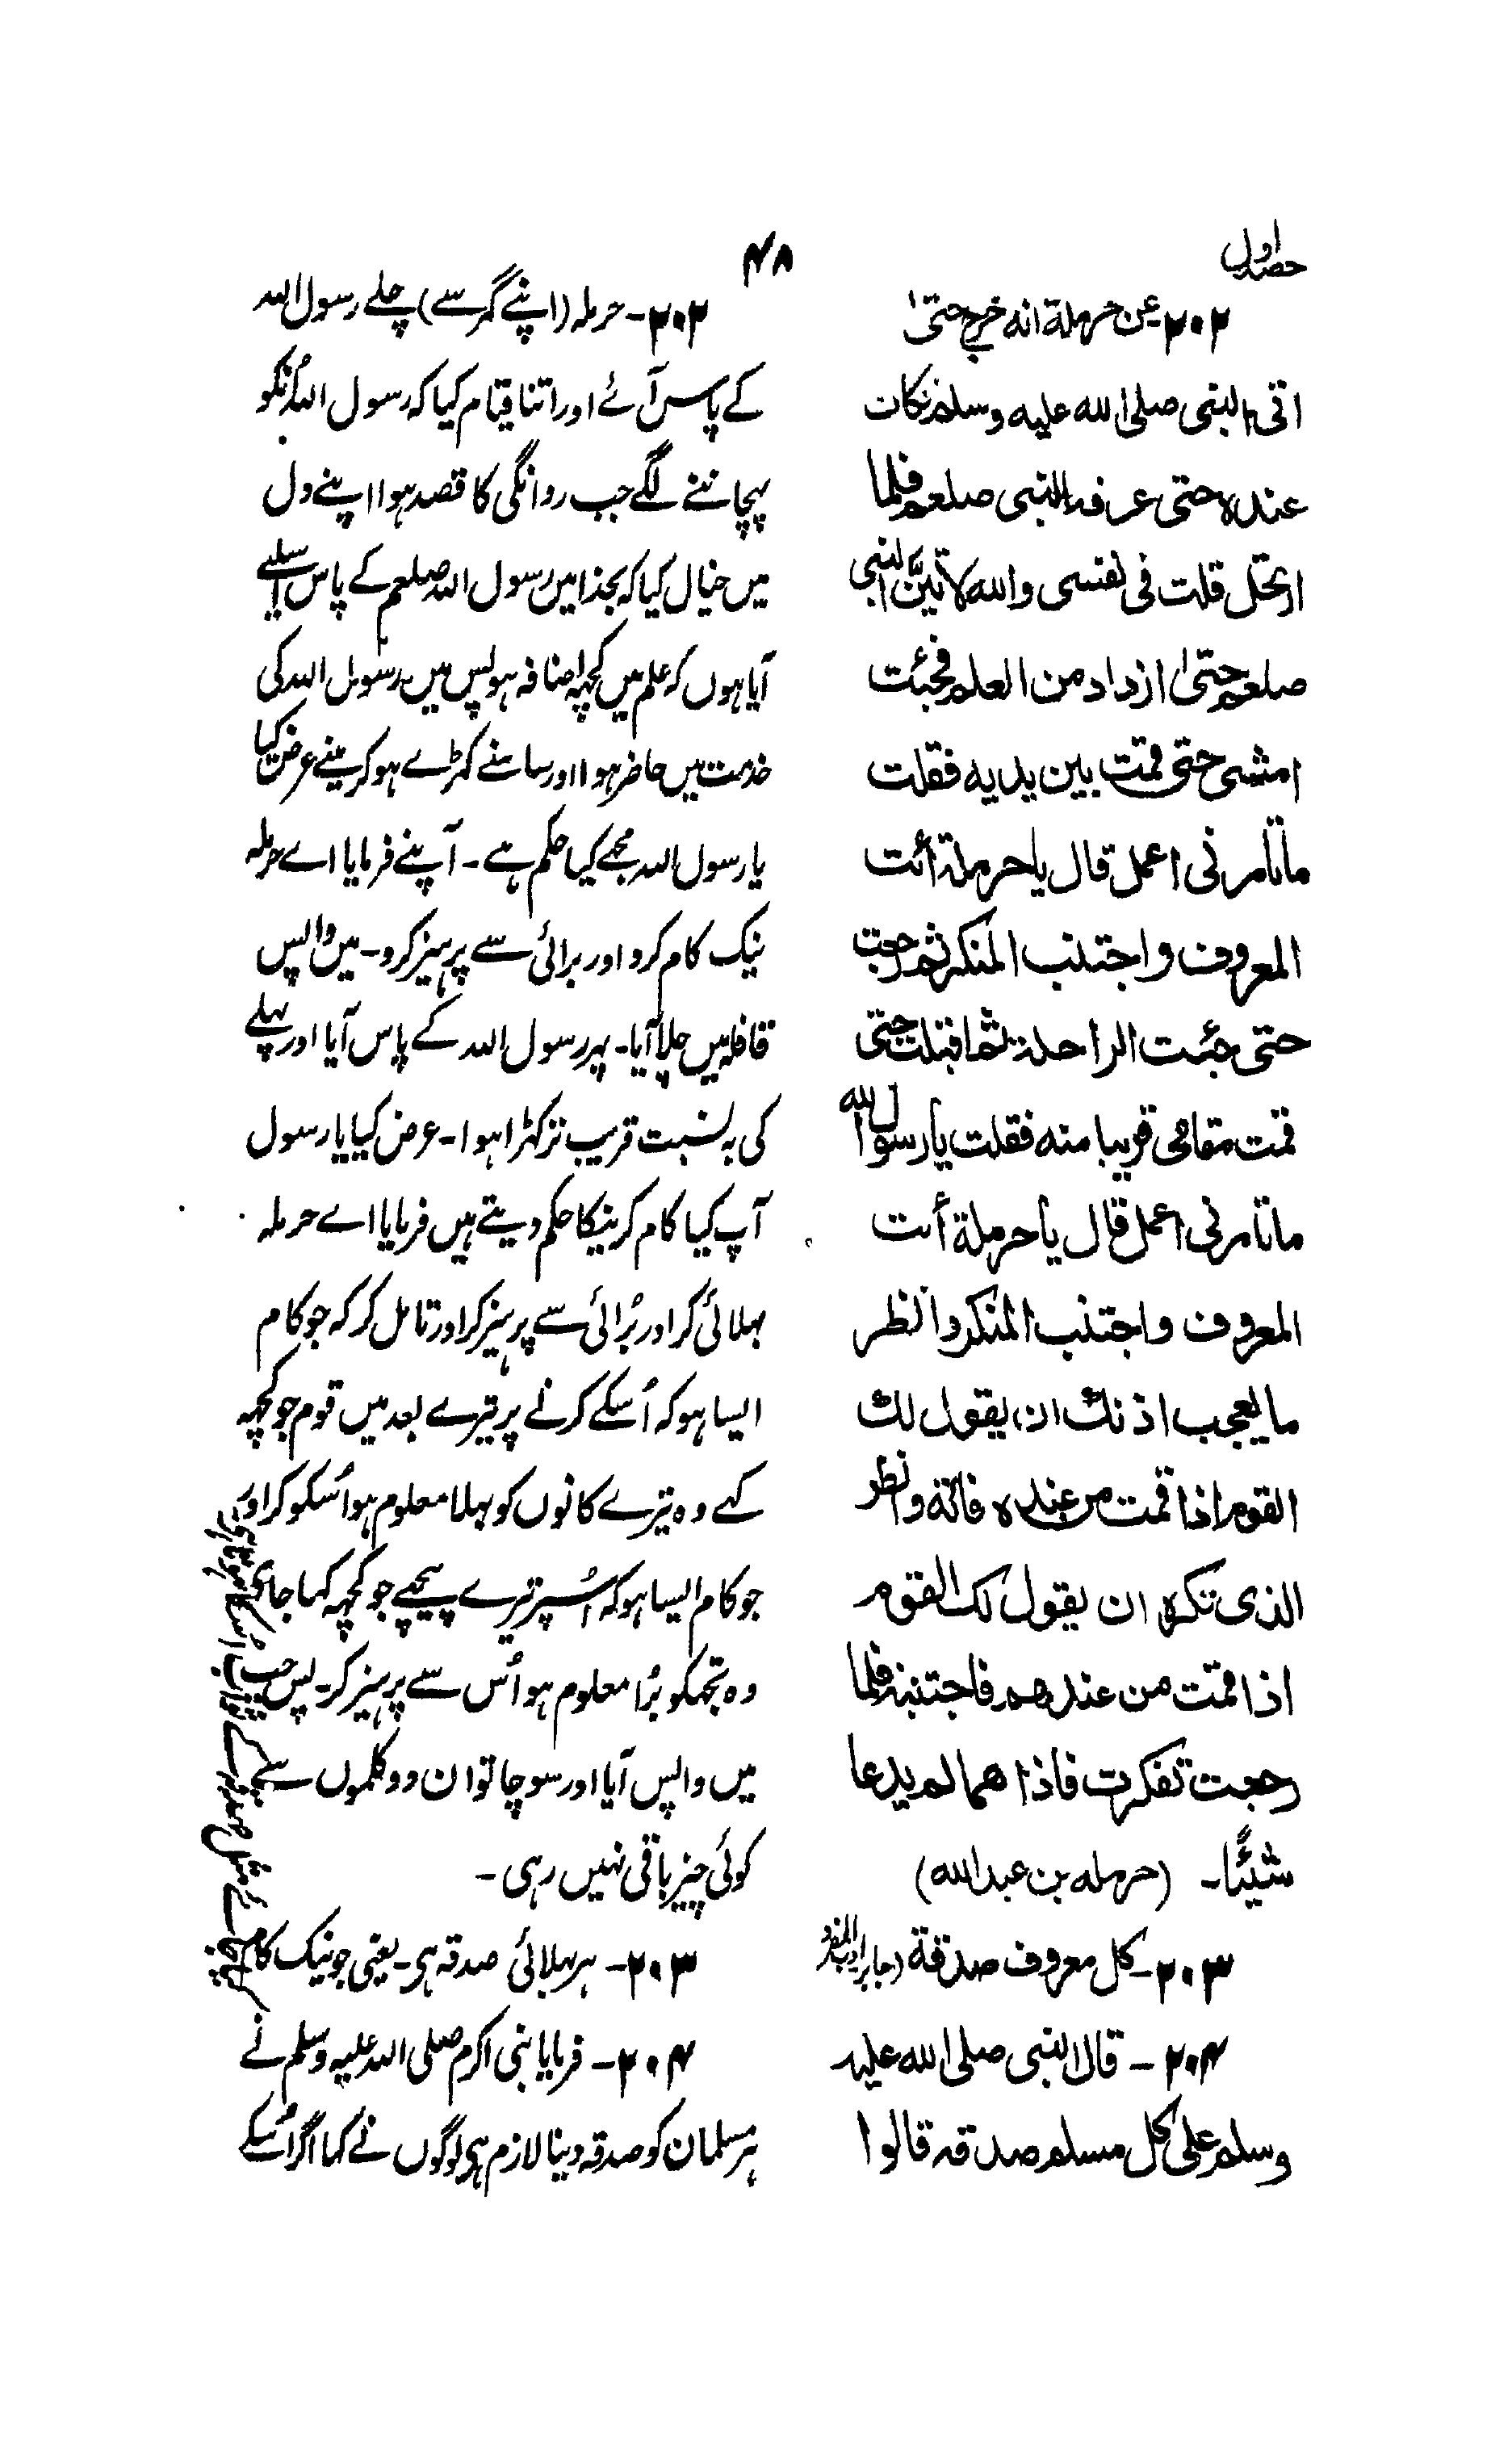 حصہ اول
۴۸
۲۰۲۔ عن حرملة انه خرج حتیٰ
اتی النبی صلی الله علیه وسلم فکان
عندہ حتی عرفه النبی صلعم فلما
ارتحل قلت فی نفسی والله لاٰتینّ النبی
صلعم حتیٰ ازداد من العلم فجئت
امشی حتی قمت بین یدیه فقلت
ما تامرنی اعمل قال یا حرملة أئت
المعروف واجتنب المنکر ثم رجعت
حتی جئت الراحلة ثم اقبلت حتی
قمت مقامی قریبا منه فقلت یا رسول الله
ما تامرنی اعمل قال یا حرملة أئت
المعروف واجتنب المنکر وانظر
ما یعجب اذنک ان یقول لک
القوم اذا قمت من عندہ فأته وانظر
الذی تکرہ ان یقول لک القوم
اذا قمت من عندهم فاجتنبه فلما
رجعت تفکرت فاذا هما لم یدعا
شیئًا۔ (حرمله بن عبد الله)
۲۰۳۔ کل معروف صدقة (جابر ادب المفرد
۲۰۴۔ قال النبی صلی الله علیه
وسلم علی کل مسلم صدقه قالوا
۲۰۲۔ حرملہ (اپنے گہر سے) چلے رسول اللہ
کے پاس آئے اور اتنا قیام کیا کہ رسول اللہ اُنکو
پہچاننے لگے جب روانگی کا قصد ہوا اپنے دل
میں خیال کیا کہ بخدا میں رسول اللہ صلعم کے پاس اسلیے
آیا ہوں کہ علم میں کچہہ اضافہ ہو پس میں رسول اللہ کی
خدمت میں حاضر ہوا اور سامنے کہڑے ہو کر مینے عرض کیا
یا رسول اللہ مجھے کیا حکم ہے۔ آپنے فرمایا اے حرملہ
نیک کام کرو اور برائی سے پرہیز کرو۔ میں واپس
قافلہ میں چلا آیا۔ پہر رسول اللہ کے پاس آیا اور پہلے
کی بہ نسبت قریب تر کہڑا ہوا۔ عرض کیا یا رسول
آپ کیا کام کرنیکا حکم دیتے ہیں فرمایا اے حرملہ
بہلائی کر اور بُرائی سے پرہیز کر اور تامل کر کہ جو کام
ایسا ہو کہ اُسکے کرنے پر تیرے بعد میں قوم جو کچہہ
کہے وہ تیرے کانوں کو بہلا معلوم ہو اُسکو کر اور
جو کام ایسا ہو کہ اُسپر تیرے پیچھے جو کچہہ کہا جائے
وہ تجہکو بُرا معلوم ہو اُس سے پرہیز کر۔ پس جب
میں واپس آیا اور سوچا تو ان دو کلموں سے
کوئی چیز باقی نہیں رہی۔
۲۰۳۔ ہر بہلائی صدقہ ہی۔ یعنی جو نیک کام
۲۰۴۔ فرمایا نبی اکرم صلی اللہ علیہ وسلم نے
ہر مسلمان کو صدقہ دینا لازم ہی لوگوں نے کہا اگر اُسکے